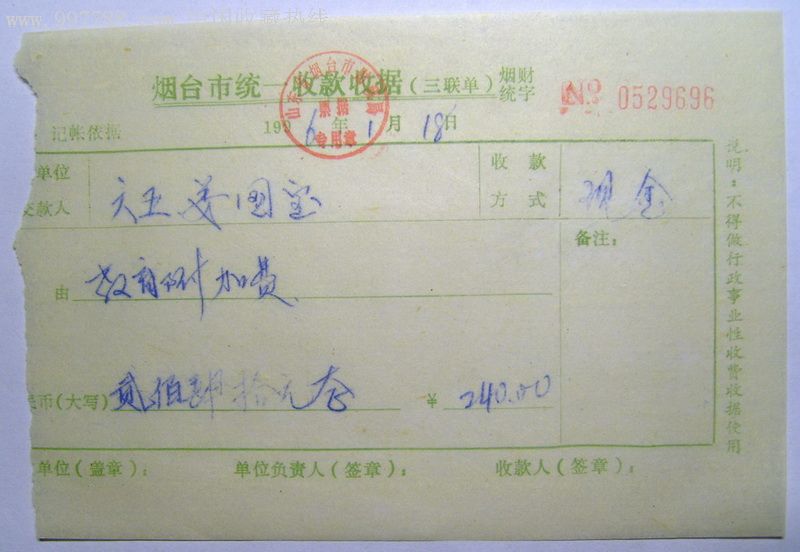 www.997788.com中国收藏热线
烟台市统一收款收据(三联单)烟财统字 № 0529696
记帐依据 1996年1月18日
票据
专用章
单位
交款人 六五姜国宝 收款方式 现金
由 教育附加费 备注:
民币(大写) 贰佰肆拾元整 ¥ 240.00
单位(盖章): 单位负责人(签章): 收款人(签章):
说明:不得做行政事业性收费收据使用